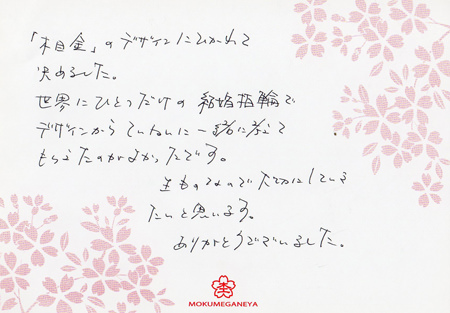 「木目金」のデザインにひかれて
決めました。
世界にひとつだけの結婚指輪で
デザインからていねいに一緒に考えて
もらえたのがよかったです。
一生ものなので大切にしていき
たいと思います。
ありがとうございました。
MOKUMEGANEYA